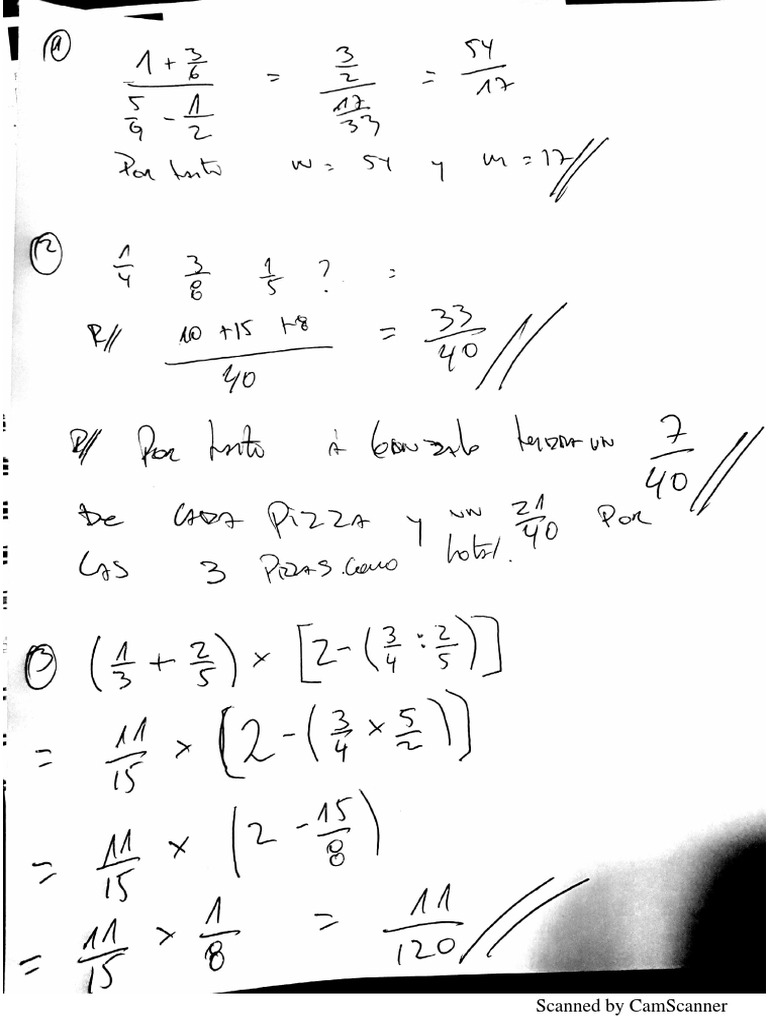 1 1 + 3/6 / 5/9 - 1/2 = 3/2 / 17/33 = 54/17
Por tanto n = 54 y m = 17 //
12 1/4 3/8 1/5 ? =
R// 10 + 15 + 8 / 40 = 33/40 //
R// Por tanto a Gonzalo 7/40 //
De cada pizza y un 21/40 por
las 3 pizzas como total.
13 (1/3 + 2/5) × [2 - (3/4 : 2/5)]
= 11/15 × [2 - (3/4 × 5/2)]
= 11/15 × (2 - 15/8)
= 11/15 × 1/8 = 11/120 //
Scanned by CamScanner